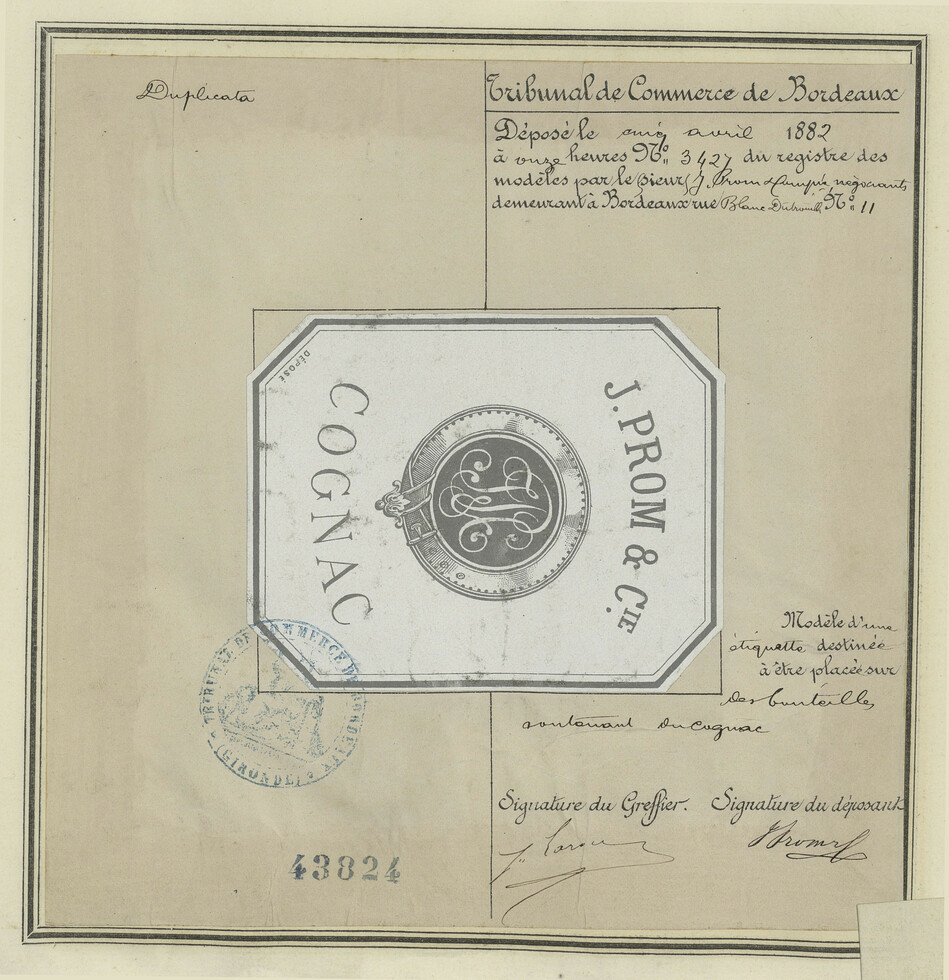 Duplicata
Tribunal de Commerce de Bordeaux
Déposé le cinq avril 1882
à onze heures No. 3427 du registre des
modèles par le Sieur J. Prom & Compie négociants
demeurant à Bordeaux rue Blanc Dutrouilh No. 11
DÉPOSÉ
J. PROM & CIE.
COGNAC
Modèle d'une
étiquette destinée
à être placée sur
des bouteilles
contenant du cognac
TRIBUNAL DE COMMERCE DE BORDEAUX
(GIRONDE)
Signature du Greffier. Signature du déposant
43824